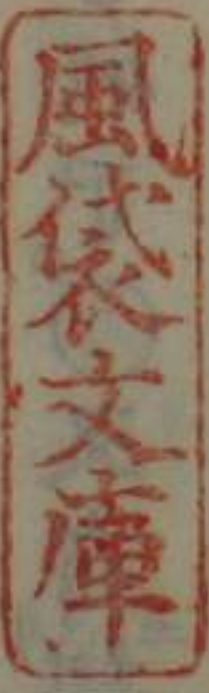 風袋文庫